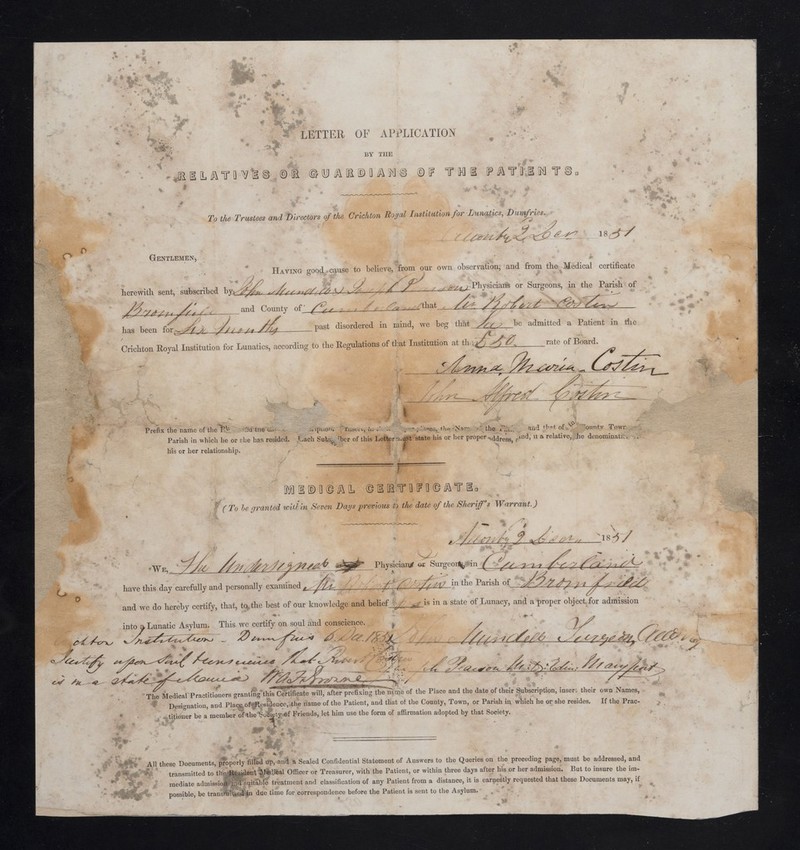 LETTER OF APPLICATION
BY THE
RELATIVES OR GUARDIANS OF THE PATIENTS.
To the Trustees and Directors of the Crichton Royal Institution for Lunatics, Dumfries.
2 Decr 1851
GENTLEMEN,
HAVING good cause to believe, from our own observation, and from the Medical certificate
herewith sent, subscribed by John Joseph Physicians or Surgeons, in the Parish of
Bromfield and County of Cumberland that Mr Robert Costin
has been for Six Months past disordered in mind, we beg that he be admitted a Patient in the
Crichton Royal Institution for Lunatics, according to the Regulations of that Institution at the £50 rate of Board.
Anna Maria Costin
John Alfred Costin
Prefix the name of the and that of County Town
Parish in which he or she has resided. Each Subscriber of this Letter must state his or her proper address, and, if a relative, the
his or her relationship.
MEDICAL CERTIFICATE.
(To be granted within Seven Days previous to the date of the Sheriff's Warrant.)
2 Decr 1851
WE, The Undersigned Physicians or Surgeons in Cumberland
have this day carefully and personally examined Mr Costin in the Parish of Bromfield
and we do hereby certify, that, to the best of our knowledge and belief is in a state of Lunacy, and a proper object for admission
into a Lunatic Asylum. This we certify on soul and conscience.
Institution - Dumfries 6 Dec 1851 John Surgeon
Certify upon Soul & conscience that Robert Costin Pearson Maryport
is in a state of Mania
The Medical Practitioners granting this Certificate will, after prefixing the name of the Place and the date of their Subscription, insert their own Names,
Designation, and Place of Residence, the name of the Patient, and that of the County, Town, or Parish in which he or she resides. If the Prac-
titioner be a member of the Society of Friends, let him use the form of affirmation adopted by that Society.
All these Documents, properly filled up, and a Sealed Confidential Statement of Answers to the Queries on the preceding page, must be addressed, and
transmitted to the Resident Medical Officer or Treasurer, with the Patient, or within three days after his or her admission. But to insure the im-
mediate admission and suitable treatment and classification of any Patient from a distance, it is earnestly requested that these Documents may, if
possible, be transmitted in due time for correspondence before the Patient is sent to the Asylum.